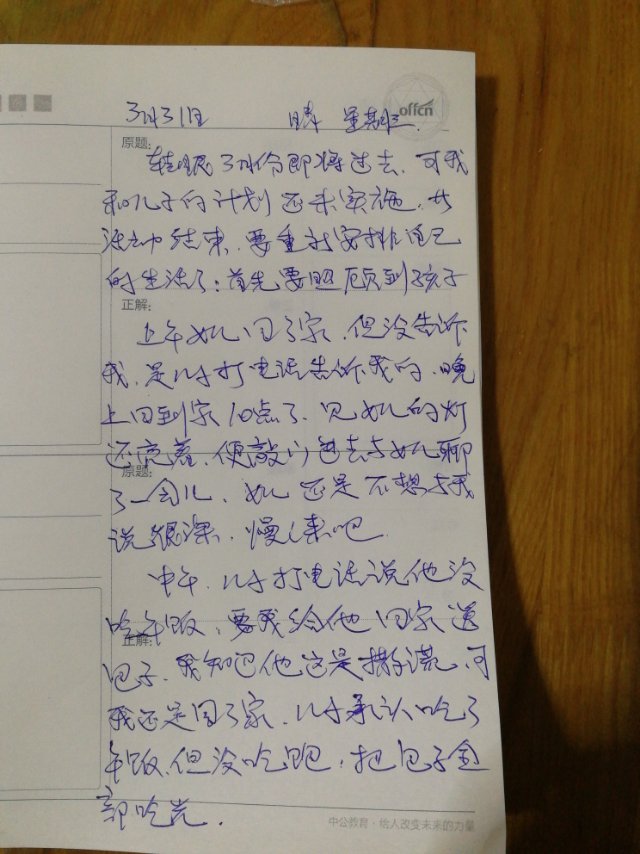 3月31日 晴 星期三
offcn
原题:
转眼3月份即将过去,可我
和儿子的计划还未实施,
结束,要重新安排自己
的生活了:首先要照顾到孩子
正解:
上午妞儿回了家,但没告诉
我,是儿子打电话告诉我的,晚
上回到家10点了,见妞儿的灯
还亮着,便敲门进去与妞儿聊
原题:
了一会儿,妞儿还是不想与我
说很深,慢慢来吧
中午,儿子打电话说他没
吃午饭,要我给他回家送
正解:
包子,我知道他这是撒谎,可
我还是回了家,儿子承认吃了
午饭,但没吃饱,把包子全
部吃光.
中公教育·给人改变未来的力量